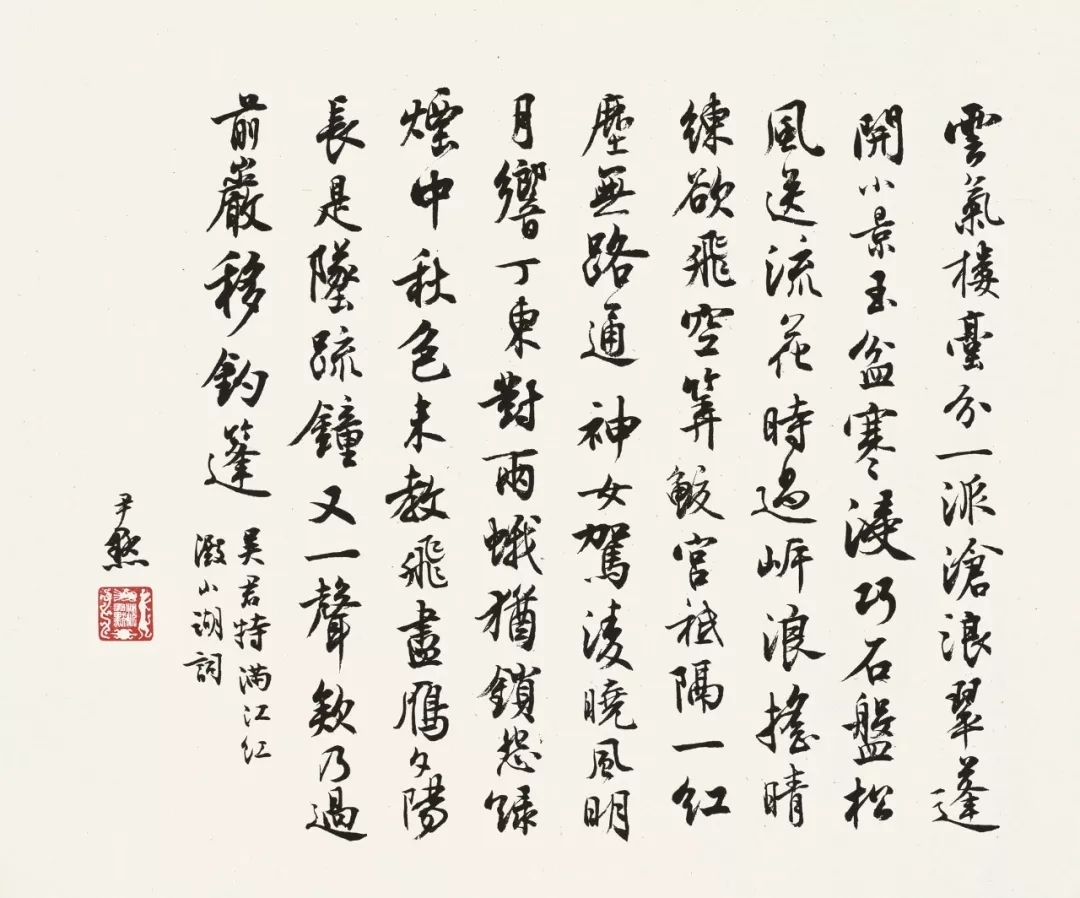 雲氣樓臺分一派滄浪翠蓬
開小景玉盆寒浸巧石盤松
風送流花時過岸浪搖晴
練欲飛空筭鮫宮祗隔一紅
塵無路通神女駕淩曉風明
月響丁東對兩蛾猶鎖怨綠
煙中秋色未教飛盡雁夕陽
長是墜疏鐘又一聲欸乃過
前巖移釣篷
吳君特滿江紅
澱山湖詞
尹默